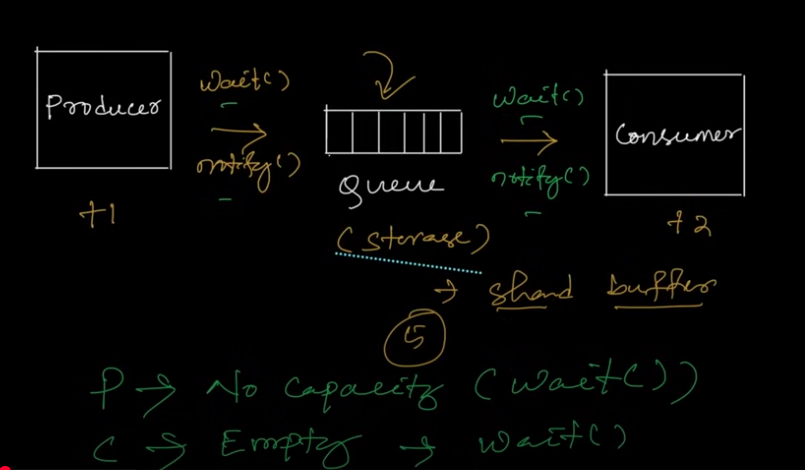 Producer
wait()
notify()
+1
Queue
(storage)
→ shared buffer
5
wait()
notify()
Consumer
+2
P → No capacity (wait())
C → Empty → wait()